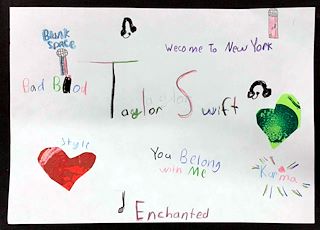 Blank
Space
Wecome To New York
Bad Blood
Taylor Swift
Style
You Belong
with Me
Karma
Enchanted